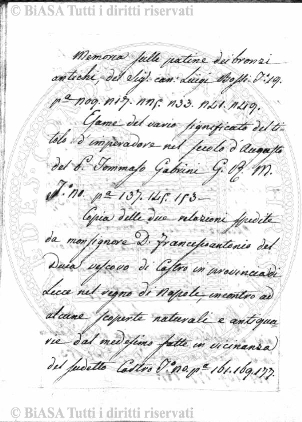 © BiASA Tutti i diritti riservati
Memoria sulle patine dei bronzi
antichi, del Sig. can: Luigi Bossi. T. 19.
p.ª 109. 117. 125. 133. 141. 149.
Esame del vario significato del ti-
tolo d'imperadore nel secolo d'Augusto
del P. Tommaso Gabrini G. R. M.
T. no. p.ª 137. 145. 153 —
Copia delle due relazioni spedite
da monsignore D. Francescoantonio del
Duca vescovo di Castro in provincia di
Lecce nel regno di Napole incontro ad
alcune scoperte naturali e antiqua-
rie dal medesimo fatte in vicinanza
del sudetto Castro T. no. p.ª 161. 169. 177.
© BiASA Tutti i diritti riservati